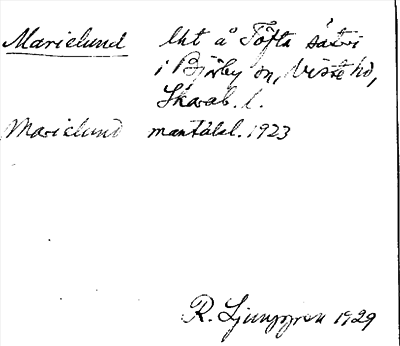 Marielund lht å Töfta säteri
i Bjärby sn, Viste hd,
Skarab. l.
Marielund mantalsl. 1923
R. Ljunggren 1929